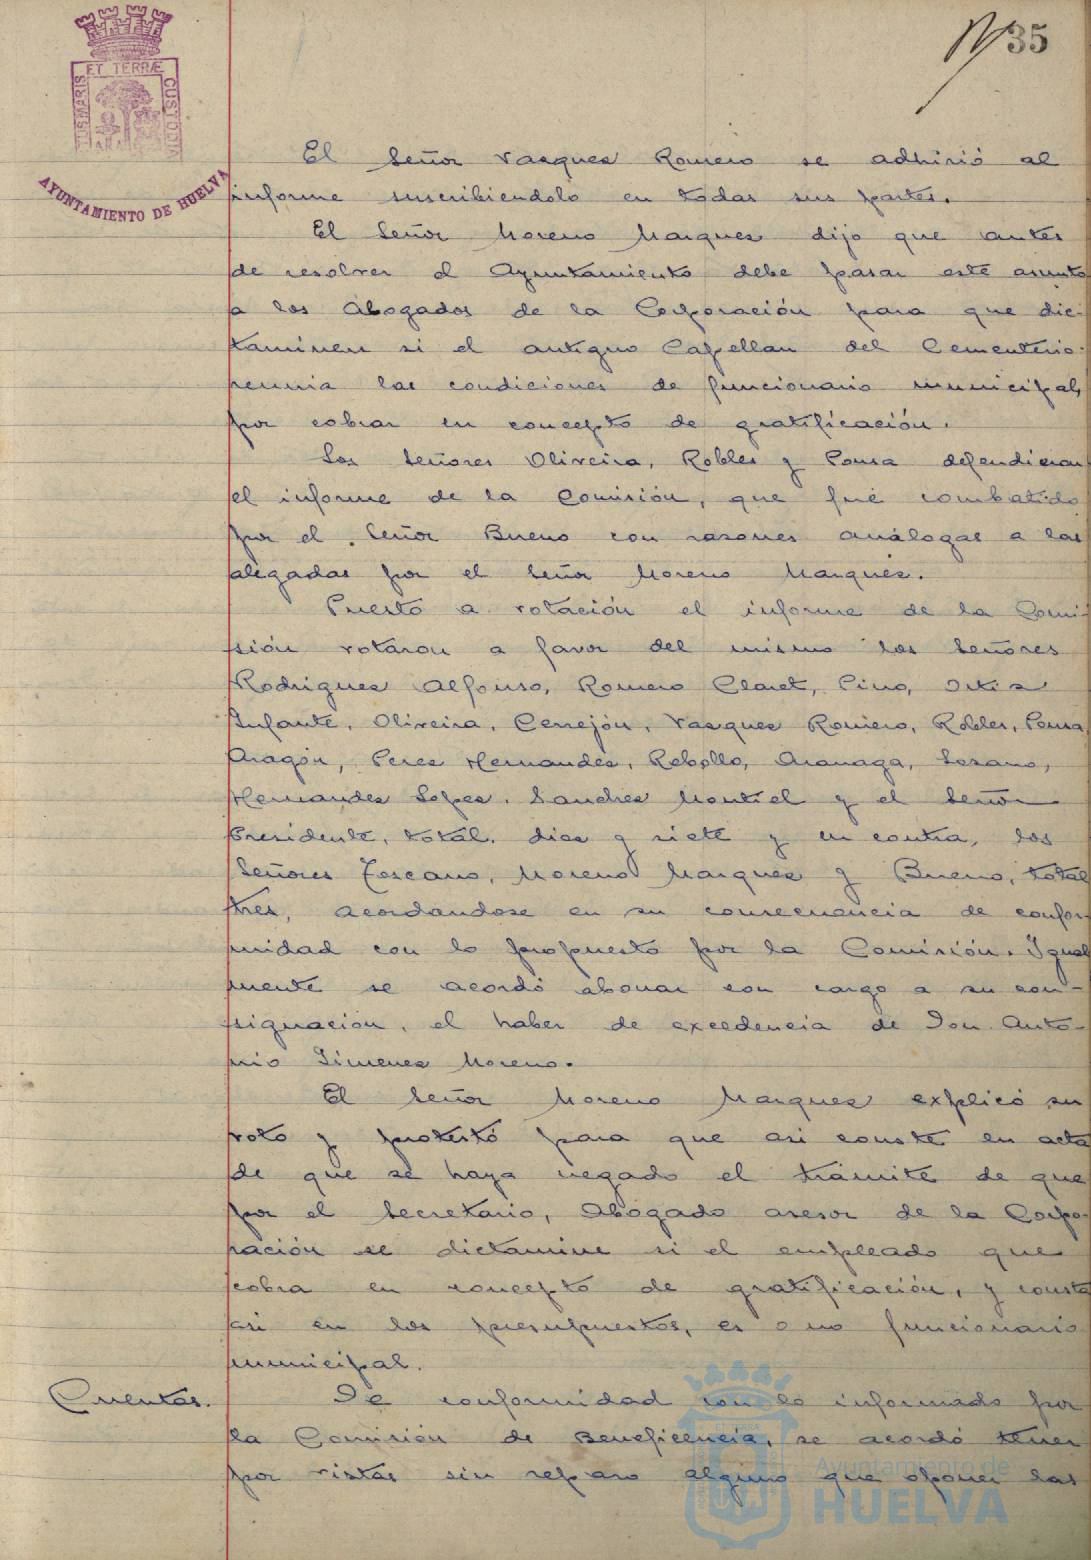 35
ET TERRÆ
CUSTODIA
AYUNTAMIENTO DE HUELVA
El Señor Vasques Romero se adhirió al
informe suscribiendolo en todas sus partes.
El Señor Moreno Marques dijo que antes
de resolver el Ayuntamiento debe pasar este asunto
a los Abogados de la Corporación para que dic-
taminen si el antiguo Capellan del Cementerio
reunia las condiciones de funcionario municipal,
por cobrar en concepto de gratificación.
Los Señores Oliveira, Robles y Ponsa defendieron
el informe de la Comisión, que fué combatido
por el Señor Bueno con razones análogas a las
alegadas por el Señor Moreno Marques.
Puesto a votación el informe de la Comi-
sión votaron a favor del mismo los Señores
Rodrigues Alfonso, Romero Claret, Pino, Ortiz
Infante, Oliveira, Cerrejón, Vasques Romero, Robles, Ponsa,
Aragón, Peres Hernandes, Rebollo, Aranaga, Lozano,
Hernandes Lopes, Sanches Montiel y el Señor
Presidente, total, dies y siete y en contra, los
Señores Toscano, Moreno Marques y Bueno, total
tres, acordandose en su consecuencia de confor-
midad con lo propuesto por la Comisión. Igual
mente se acordó abonar con cargo a su con-
signación, el haber de excedencia de Don Anto-
nio Jimenes Moreno.
El Señor Moreno Marques explicó su
voto y protestó para que asi conste en acta
de que se haya negado el trámite de que
por el Secretario, Abogado asesor de la Corpo-
ración se dictamine si el empleado que
cobra en concepto de gratificación, y consta
asi en los presupuestos, es o no funcionario
municipal.
Cuentas. De conformidad con lo informado por
la Comisión de Beneficencia, se acordó tener
por vistas sin reparo alguno que oponer las
Ayuntamiento de
HUELVA